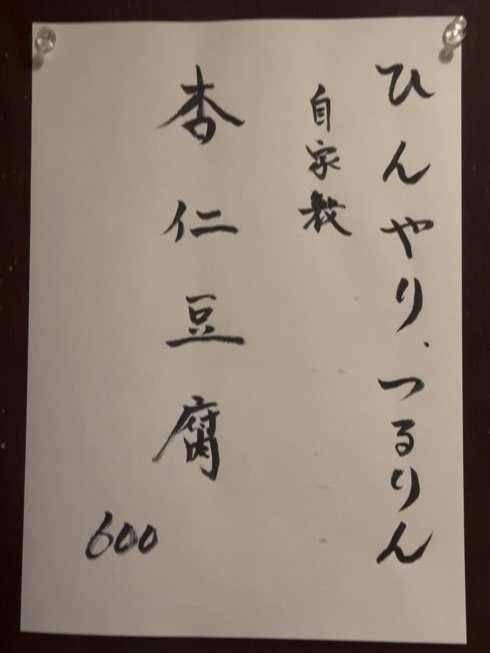 ひんやり、つるりん
自家製
杏仁豆腐
600